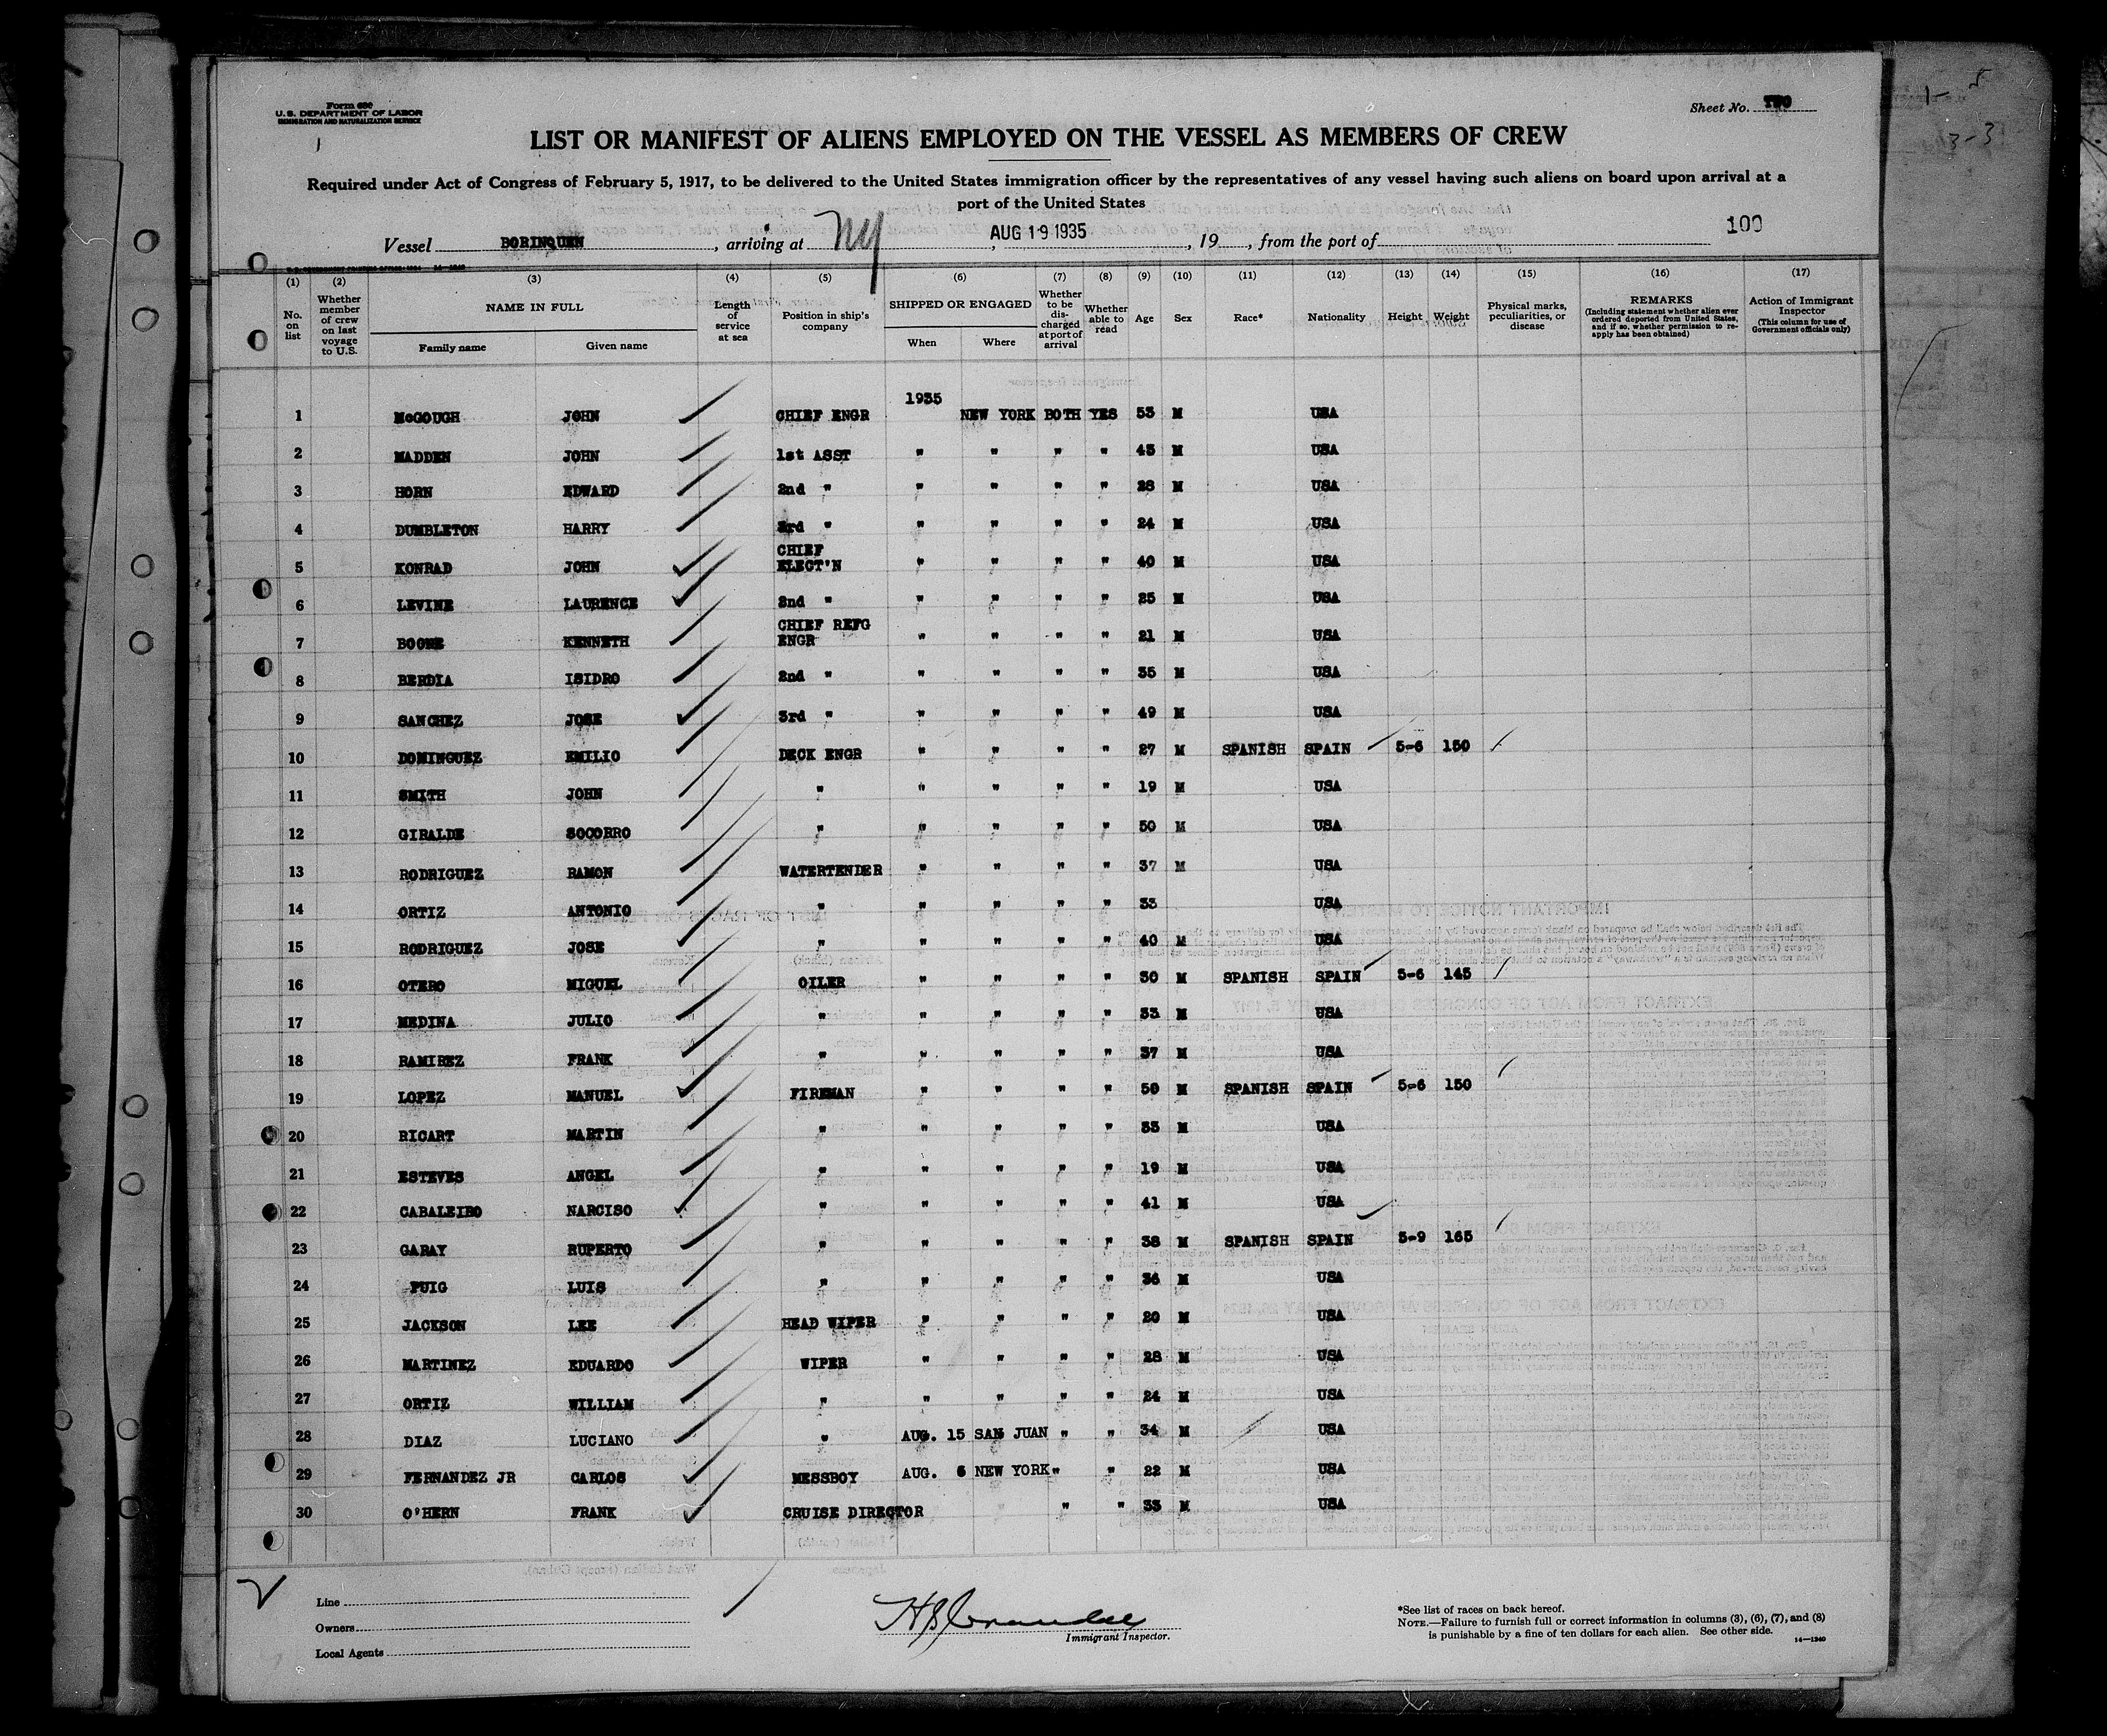 Form 680
U. S. DEPARTMENT OF LABOR
IMMIGRATION AND NATURALIZATION SERVICE
Sheet No. TWO
1- 5
3-3
LIST OR MANIFEST OF ALIENS EMPLOYED ON THE VESSEL AS MEMBERS OF CREW
Required under Act of Congress of February 5, 1917, to be delivered to the United States immigration officer by the representatives of any vessel having such aliens on board upon arrival at a
port of the United States
Vessel BORINQUEN, arriving at NY, AUG 19 1935, 19, from the port of 100
(1) (2) (3) (4) (5) (6) (7) (8) (9) (10) (11) (12) (13) (14) (15) (16) (17)
No. on list
Whether member of crew on last voyage to U.S.
NAME IN FULL
Family name Given name
Length of service at sea
Position in ship's company
SHIPPED OR ENGAGED
When Where
Whether to be discharged at port of arrival
Whether able to read
Age
Sex
Race*
Nationality
Height
Weight
Physical marks, peculiarities, or disease
REMARKS
(Including statement whether alien ever ordered deported from United States, and if so, whether permission to re-apply has been obtained)
Action of Immigrant Inspector
(This column for use of Government officials only)
1 McGOUGH JOHN CHIEF ENGR 1935 NEW YORK BOTH YES 53 M USA
2 MADDEN JOHN 1st ASST " " " " 43 M USA
3 HORN EDWARD 2nd " " " " " 28 M USA
4 DUMBLETON HARRY 3rd " " " " " 24 M USA
5 KONRAD JOHN CHIEF ELECT'N " " " " 40 M USA
6 LEVINE LAURENCE 2nd " " " " " 25 M USA
7 BOONE KENNETH CHIEF REFG ENGR " " " " 21 M USA
8 BERDIA ISIDRO 2nd " " " " " 35 M USA
9 SANCHEZ JOSE 3rd " " " " " 49 M USA
10 DOMINGUEZ EMILIO DECK ENGR " " " " 27 M SPANISH SPAIN 5-6 150
11 SMITH JOHN " " " " " 19 M USA
12 GIRALDE SOCORRO " " " " " 50 M USA
13 RODRIGUEZ RAMON WATERTENDER " " " " 37 M USA
14 ORTIZ ANTONIO " " " " " 33 USA
15 RODRIGUEZ JOSE " " " " " 40 M USA
16 OTERO MIGUEL OILER " " " " 30 M SPANISH SPAIN 5-6 145
17 MEDINA JULIO " " " " " 33 M USA
18 RAMIREZ FRANK " " " " " 37 M USA
19 LOPEZ MANUEL FIREMAN " " " " 50 M SPANISH SPAIN 5-6 150
20 RICART MARTIN " " " " " 33 M USA
21 ESTEVES ANGEL " " " " " 19 M USA
22 CABALEIRO NARCISO " " " " " 41 M USA
23 GARAY RUPERTO " " " " " 38 M SPANISH SPAIN 5-9 165
24 PUIG LUIS " " " " " 36 M USA
25 JACKSON LEE HEAD WIPER " " " " 20 M USA
26 MARTINEZ EDUARDO WIPER " " " " 28 M USA
27 ORTIZ WILLIAM " " " " " 24 M USA
28 DIAZ LUCIANO " AUG. 15 SAN JUAN " " 34 M USA
29 FERNANDEZ JR CARLOS MESSBOY AUG. 6 NEW YORK " " 22 M USA
30 O'HERN FRANK CRUISE DIRECTOR " " 33 M USA
Line
Owners
Local Agents
Immigrant Inspector.
*See list of races on back hereof.
NOTE.—Failure to furnish full or correct information in columns (3), (6), (7), and (8)
is punishable by a fine of ten dollars for each alien. See other side.
14—1240